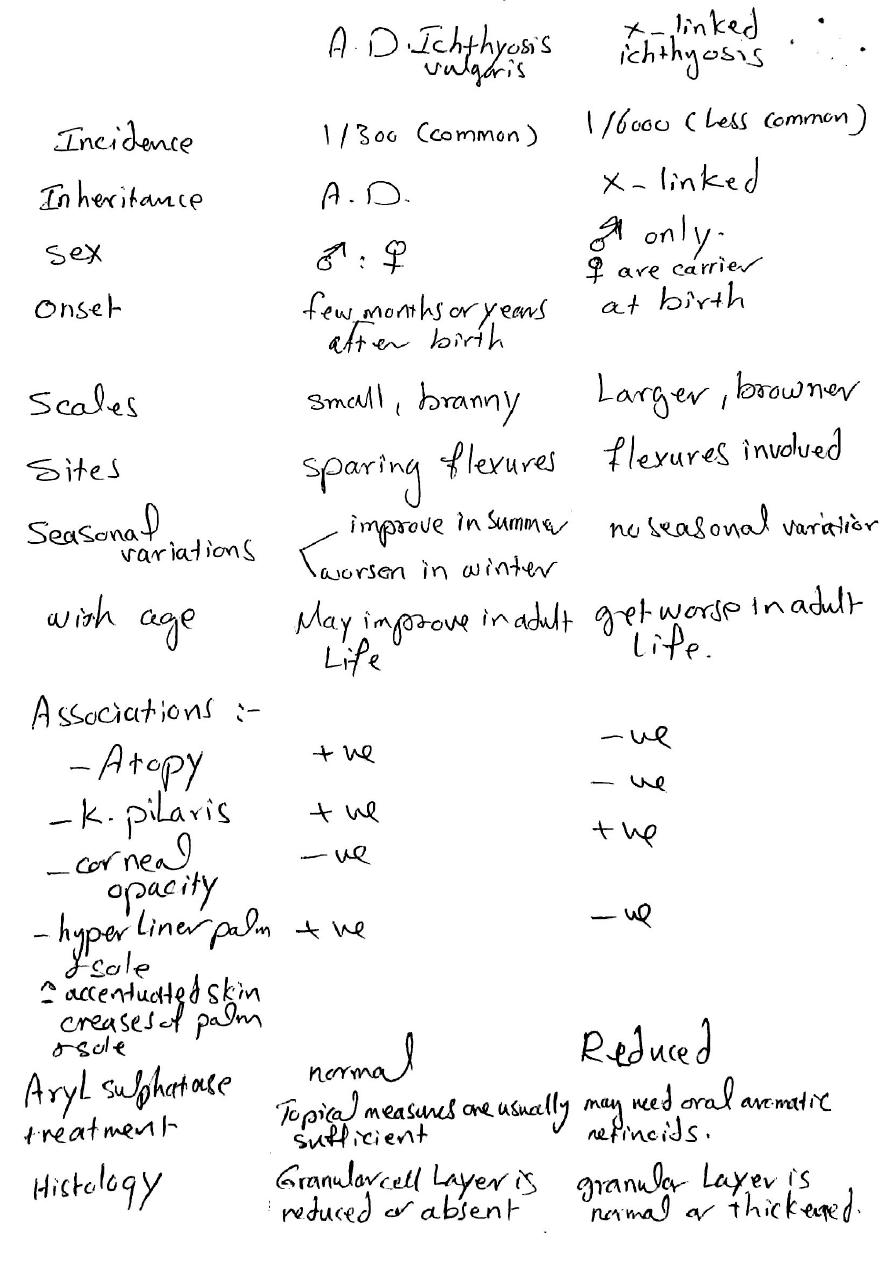 A.D. Ichthyosis vulgaris x-linked ichthyosis
Incidence 1/300 (common) 1/6000 (Less common)
Inheritance A.D. x-linked
sex ♂:♀ ♂ only.
♀ are carrier
onset few months or years after birth at birth
Scales small, branny Larger, browner
Sites sparing flexures flexures involved
Seasonal variations improve in summer no seasonal variation
worsen in winter
with age May improve in adult Life get worse in adult Life.
Associations :-
- Atopy +ve -ve
- k. pilaris +ve -ve
- corneal opacity -ve +ve
- hyper Liner palm & sole +ve -ve
= accentuated skin creases of palm & sole
Aryl sulphatase normal Reduced
treatment Topical measures are usually sufficient may need oral aromatic retinoids.
Histology Granular cell Layer is reduced or absent granular Layer is normal or thickened.